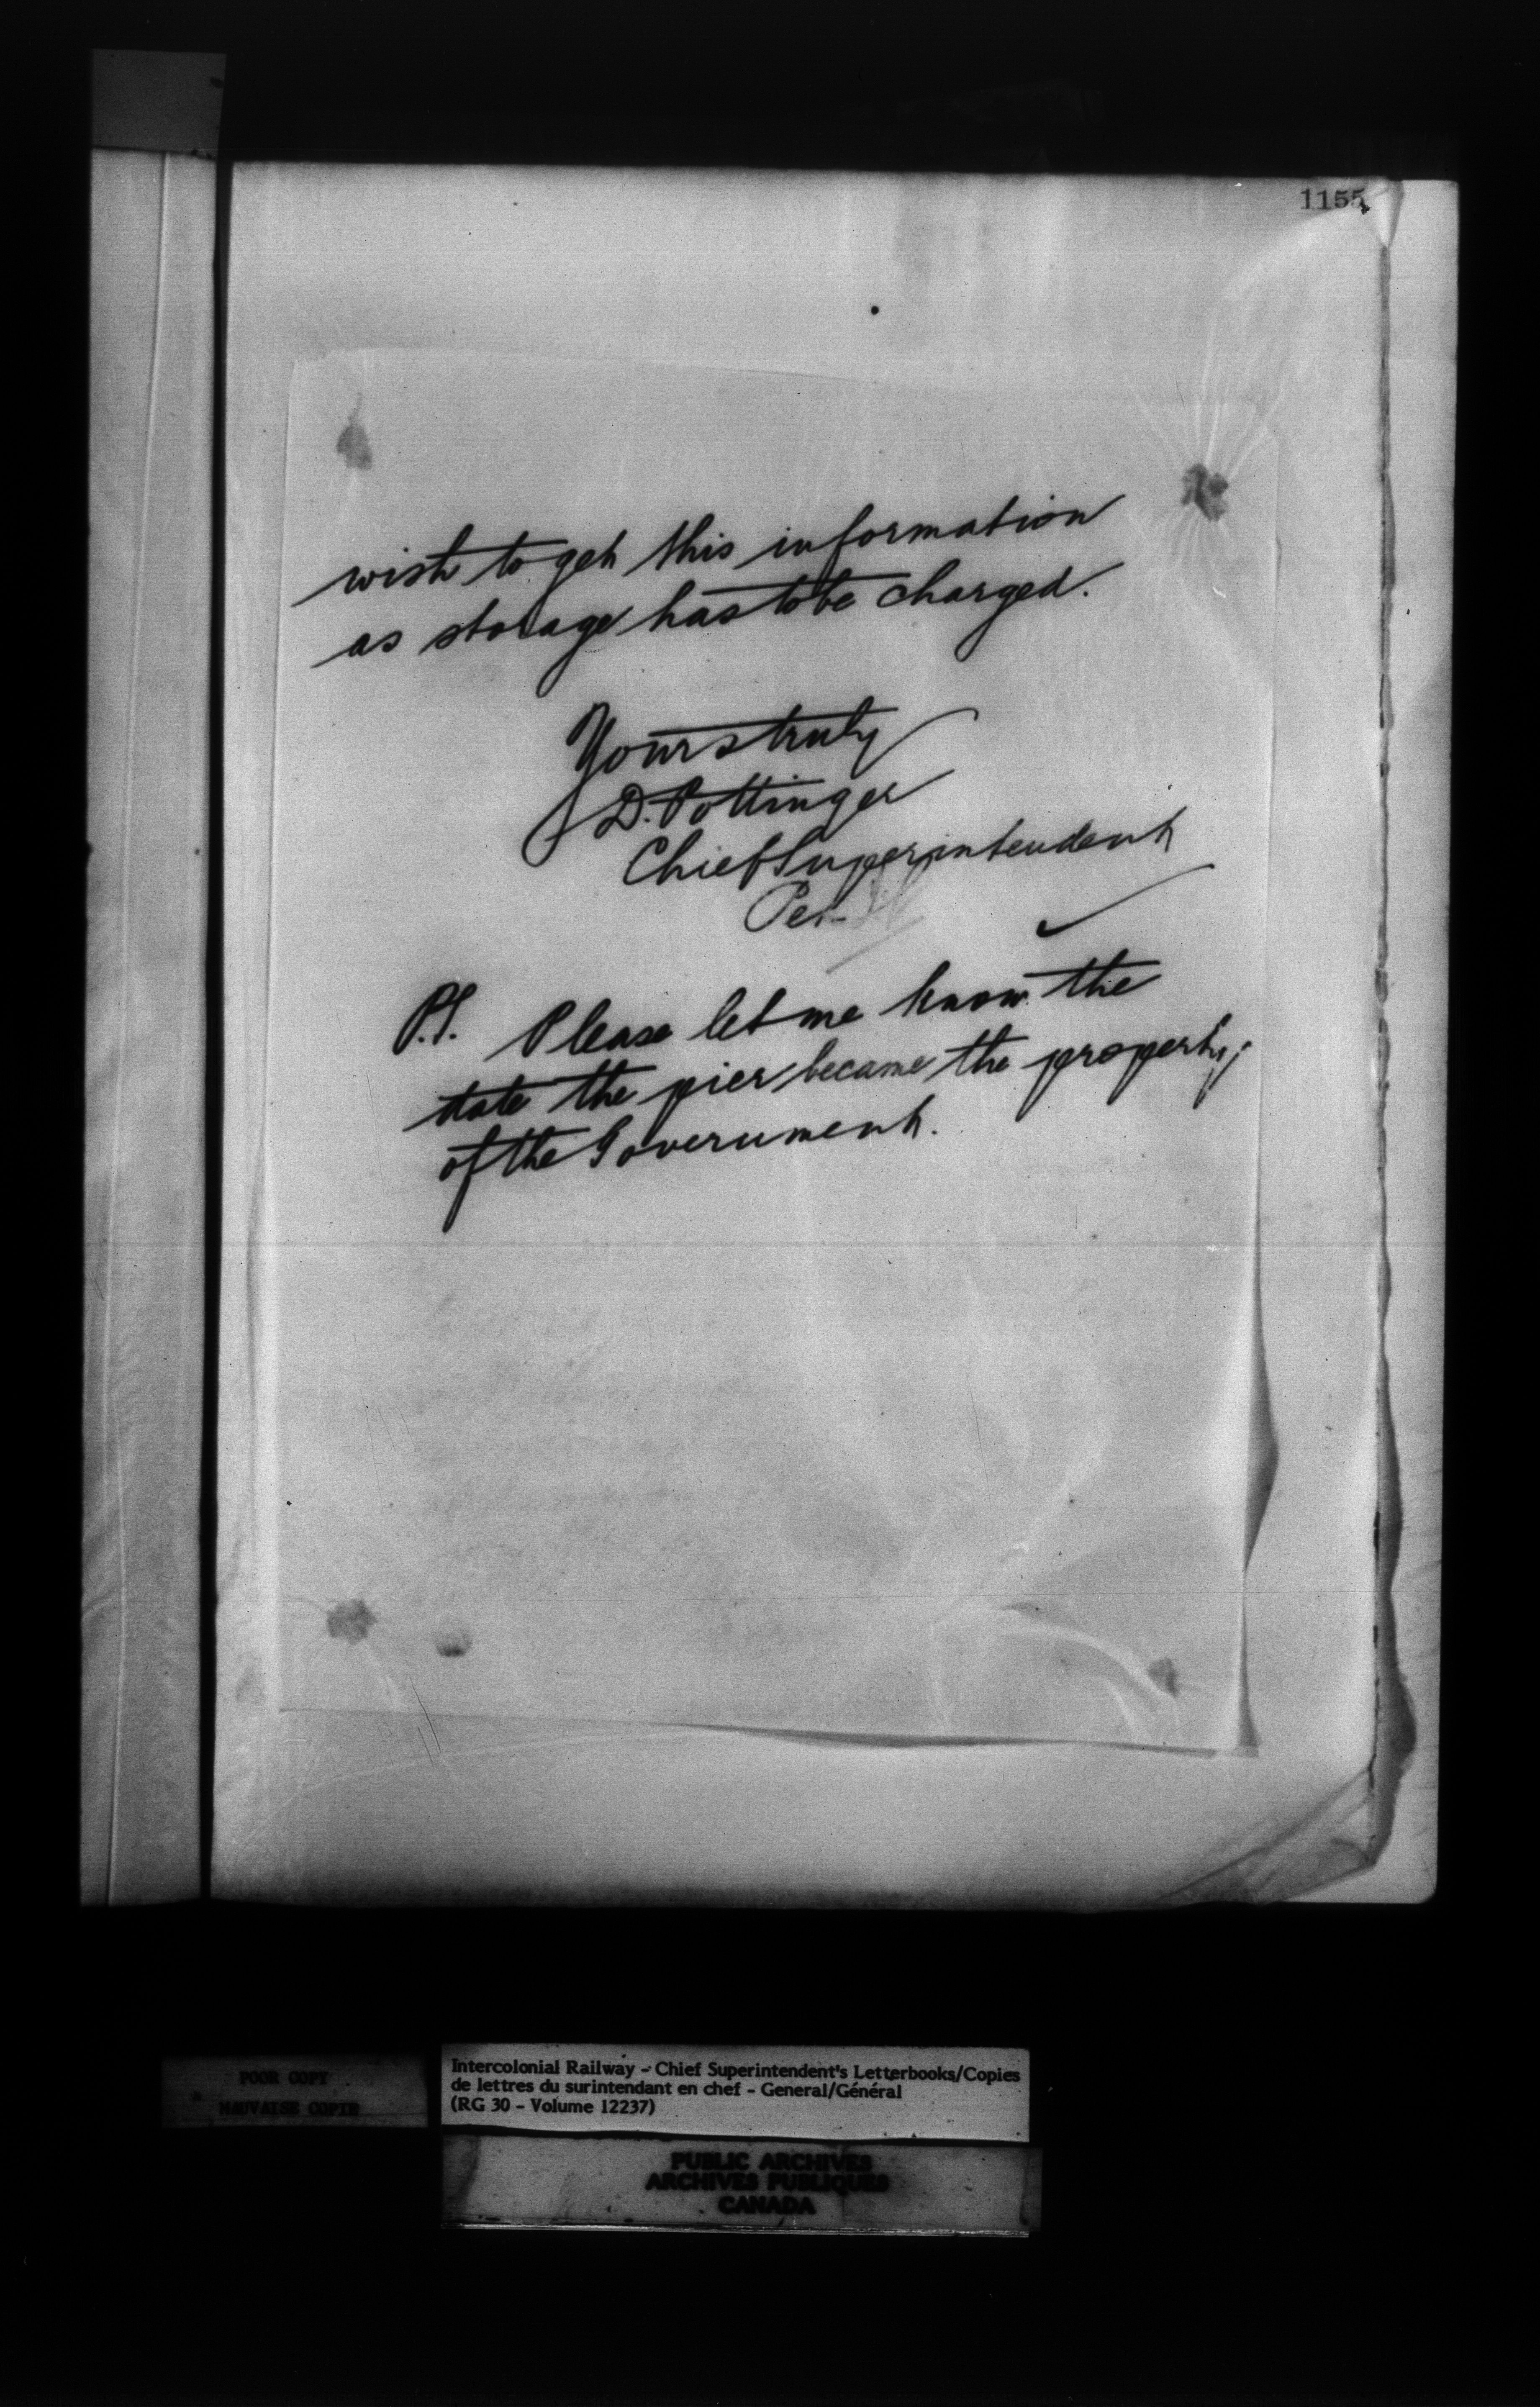 1155
wish to get this information
as storage has to be charged.
Yours truly
D. Pottinger
Chief Superintendent
Per
P.S. Please let me know the
date the pier became the property
of the Government.
POOR COPY
MAUVAISE COPIE
Intercolonial Railway - Chief Superintendent's Letterbooks/Copies
de lettres du surintendant en chef - General/Général
(RG 30 - Volume 12237)
PUBLIC ARCHIVES
ARCHIVES PUBLIQUES
CANADA